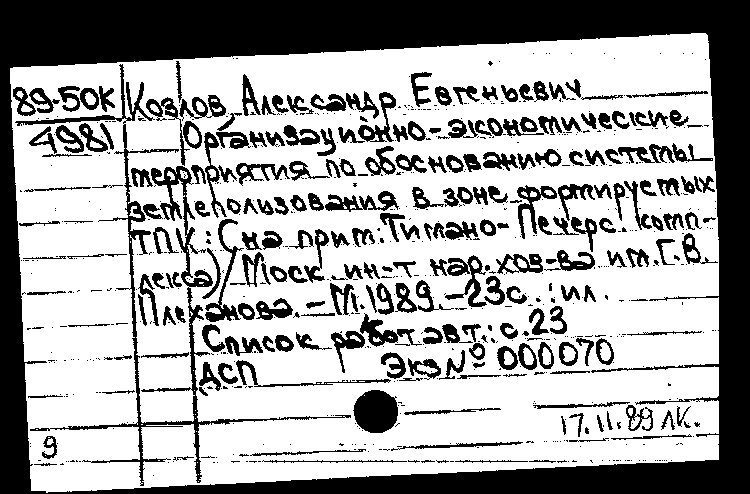 89-50К Козлов Александр Евгеньевич
4981 Организационно-экономические
мероприятия по обоснованию системы
землепользования в зоне формируемых
ТПК: (на прим. Тимано-Печерс. комп-
лекса) / Моск. ин-т нар. хоз-ва им. Г.В.
Плеханова. - М. 1989. - 23с. : ил.
Список работ авт.: с. 23
ДСП Экз № 000070
17.11.89 ЛК.
9